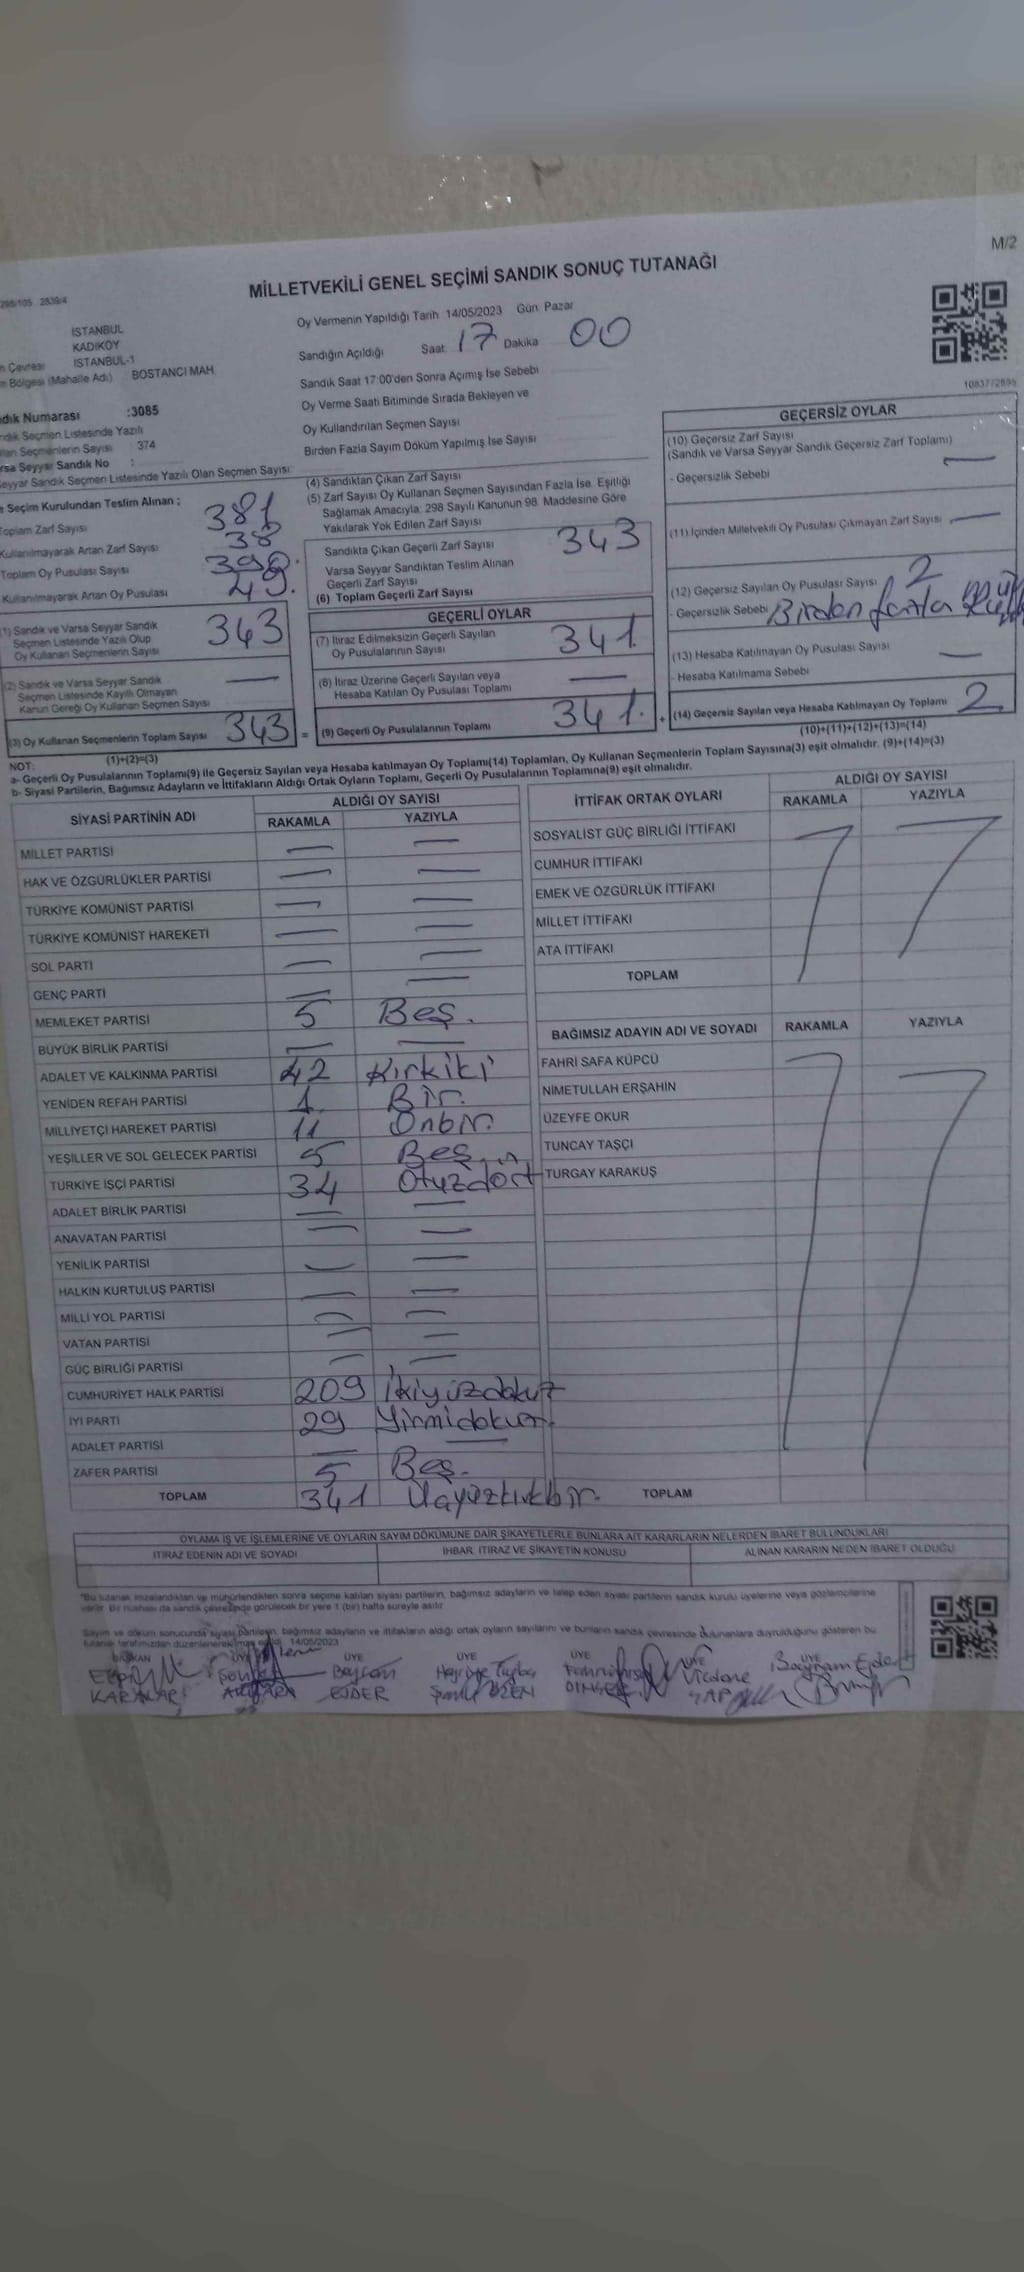 M/2
MİLLETVEKİLİ GENEL SEÇİMİ SANDIK SONUÇ TUTANAĞI
298/105 2839/4
İSTANBUL
KADIKÖY
İSTANBUL-1
Çevresi
Bölgesi (Mahalle Adı) BOSTANCI MAH
Oy Vermenin Yapıldığı Tarih 14/05/2023 Gün: Pazar
Sandığın Açıldığı Saat 17 Dakika 00
Sandık Saat 17:00'den Sonra Açımış İse Sebebi
Oy Verme Saati Bitiminde Sırada Bekleyen ve
Oy Kullandırılan Seçmen Sayısı
Birden Fazla Sayım Döküm Yapılmış İse Sayısı
dık Numarası :3085
ndık Seçmen Listesinde Yazılı
lan Seçmenlerin Sayısı 374
rsa Seyyar Sandık No :
eyyar Sandık Seçmen Listesinde Yazılı Olan Seçmen Sayısı:
Seçim Kurulundan Teslim Alınan ;
Toplam Zarf Sayısı 381
Kullanılmayarak Artan Zarf Sayısı 38
Toplam Oy Pusulası Sayısı
Kullanılmayarak Artan Oy Pusulası 49.
(1) Sandık ve Varsa Seyyar Sandık
Seçmen Listesinde Yazılı Olup
Oy Kullanan Seçmenlerin Sayısı 343
(2) Sandık ve Varsa Seyyar Sandık
Seçmen Listesinde Kayıtlı Olmayan
Kanun Gereği Oy Kullanan Seçmen Sayısı —
(3) Oy Kullanan Seçmenlerin Toplam Sayısı 343
(1)+(2)=(3)
(4) Sandıktan Çıkan Zarf Sayısı
(5) Zarf Sayısı Oy Kullanan Seçmen Sayısından Fazla İse, Eşitliği
Sağlamak Amacıyla; 298 Sayılı Kanunun 98. Maddesine Göre
Yakılarak Yok Edilen Zarf Sayısı
Sandıkta Çıkan Geçerli Zarf Sayısı 343
Varsa Seyyar Sandıktan Teslim Alınan
Geçerli Zarf Sayısı
(6) Toplam Geçerli Zarf Sayısı
GEÇERLİ OYLAR
(7) İtiraz Edilmeksizin Geçerli Sayılan
Oy Pusulalarının Sayısı 341.
(8) İtiraz Üzerine Geçerli Sayılan veya
Hesaba Katılan Oy Pusulası Toplamı —
= (9) Geçerli Oy Pusulalarının Toplamı 341. +
GEÇERSİZ OYLAR
(10) Geçersiz Zarf Sayısı
(Sandık ve Varsa Seyyar Sandık Geçersiz Zarf Toplamı)
- Geçersiz Sebebi —
(11) İçinden Milletvekili Oy Pusulası Çıkmayan Zarf Sayısı —
(12) Geçersiz Sayılan Oy Pusulası Sayısı 2
- Geçersizlik Sebebi Birden fazla
(13) Hesaba Katılmayan Oy Pusulası Sayısı —
- Hesaba Katılmama Sebebi
(14) Geçersiz Sayılan veya Hesaba Katılmayan Oy Toplamı 2
(10)+(11)+(12)+(13)=(14)
NOT:
a- Geçerli Oy Pusulalarının Toplamı(9) ile Geçersiz Sayılan veya Hesaba katılmayan Oy Toplamı(14) Toplamları, Oy Kullanan Seçmenlerin Toplam Sayısına(3) eşit olmalıdır. (9)+(14)=(3)
b- Siyasi Partilerin, Bağımsız Adayların ve İttifakların Aldığı Ortak Oyların Toplamı, Geçerli Oy Pusulalarının Toplamına(9) eşit olmalıdır.
SİYASİ PARTİNİN ADI ALDIĞI OY SAYISI
RAKAMLA YAZIYLA
MİLLET PARTİSİ — —
HAK VE ÖZGÜRLÜKLER PARTİSİ — —
TÜRKİYE KOMÜNİST PARTİSİ — —
TÜRKİYE KOMÜNİST HAREKETİ — —
SOL PARTİ — —
GENÇ PARTİ — —
MEMLEKET PARTİSİ 5 Beş.
BÜYÜK BİRLİK PARTİSİ — —
ADALET VE KALKINMA PARTİSİ 42 Kırkiki
YENİDEN REFAH PARTİSİ 1. Bir.
MİLLİYETÇİ HAREKET PARTİSİ 11 Onbir.
YEŞİLLER VE SOL GELECEK PARTİSİ 5 Beş.
TÜRKİYE İŞÇİ PARTİSİ 34 Otuzdört
ADALET BİRLİK PARTİSİ — —
ANAVATAN PARTİSİ — —
YENİLİK PARTİSİ — —
HALKIN KURTULUŞ PARTİSİ — —
MİLLİ YOL PARTİSİ — —
VATAN PARTİSİ — —
GÜÇ BİRLİĞİ PARTİSİ — —
CUMHURİYET HALK PARTİSİ 209 İkiyüzdokuz
İYİ PARTİ 29 Yirmidokuz
ADALET PARTİSİ — —
ZAFER PARTİSİ 5 Beş.
TOPLAM 341 Üçyüzkırkbir.
İTTİFAK ORTAK OYLARI ALDIĞI OY SAYISI
RAKAMLA YAZIYLA
SOSYALİST GÜÇ BİRLİĞİ İTTİFAKI
CUMHUR İTTİFAKI
EMEK VE ÖZGÜRLÜK İTTİFAKI
MİLLET İTTİFAKI
ATA İTTİFAKI
TOPLAM
BAĞIMSIZ ADAYIN ADI VE SOYADI RAKAMLA YAZIYLA
FAHRİ SAFA KÜPCÜ
NİMETULLAH ERŞAHİN
ÜZEYFE OKUR
TUNCAY TAŞÇI
TURGAY KARAKUŞ
TOPLAM
OYLAMA İŞ VE İŞLEMLERİNE VE OYLARIN SAYIM DÖKÜMÜNE DAİR ŞİKAYETLERLE BUNLARA AİT KARARLARIN NELERDEN İBARET BULUNDUKLARI
İTİRAZ EDENİN ADI VE SOYADI İHBAR, İTİRAZ VE ŞİKAYETİN KONUSU ALINAN KARARIN NEDEN İBARET OLDUĞU
*Bu tutanak imzalandıktan ve mühürlendikten sonra seçime katılan siyasi partilerin, bağımsız adayların ve talep eden siyasi partilerin sandık kurulu üyelerine veya gözlemcilerine
verilir. Bir nüshası da sandık çevresinde görülecek bir yere 1 (bir) hafta süreyle asılır.
Sayım ve döküm sonucunda siyasi partilerin, bağımsız adayların ve ittifakların aldığı ortak oyların sayılarını ve bunların sandık çevresinde bulunanlara duyrulduğunu gösteren bu
tutanak tarafımızdan düzenlenerek 14/05/2023
BAŞKAN ÜYE ÜYE ÜYE ÜYE ÜYE ÜYE
Bayram Bayram
EJDER